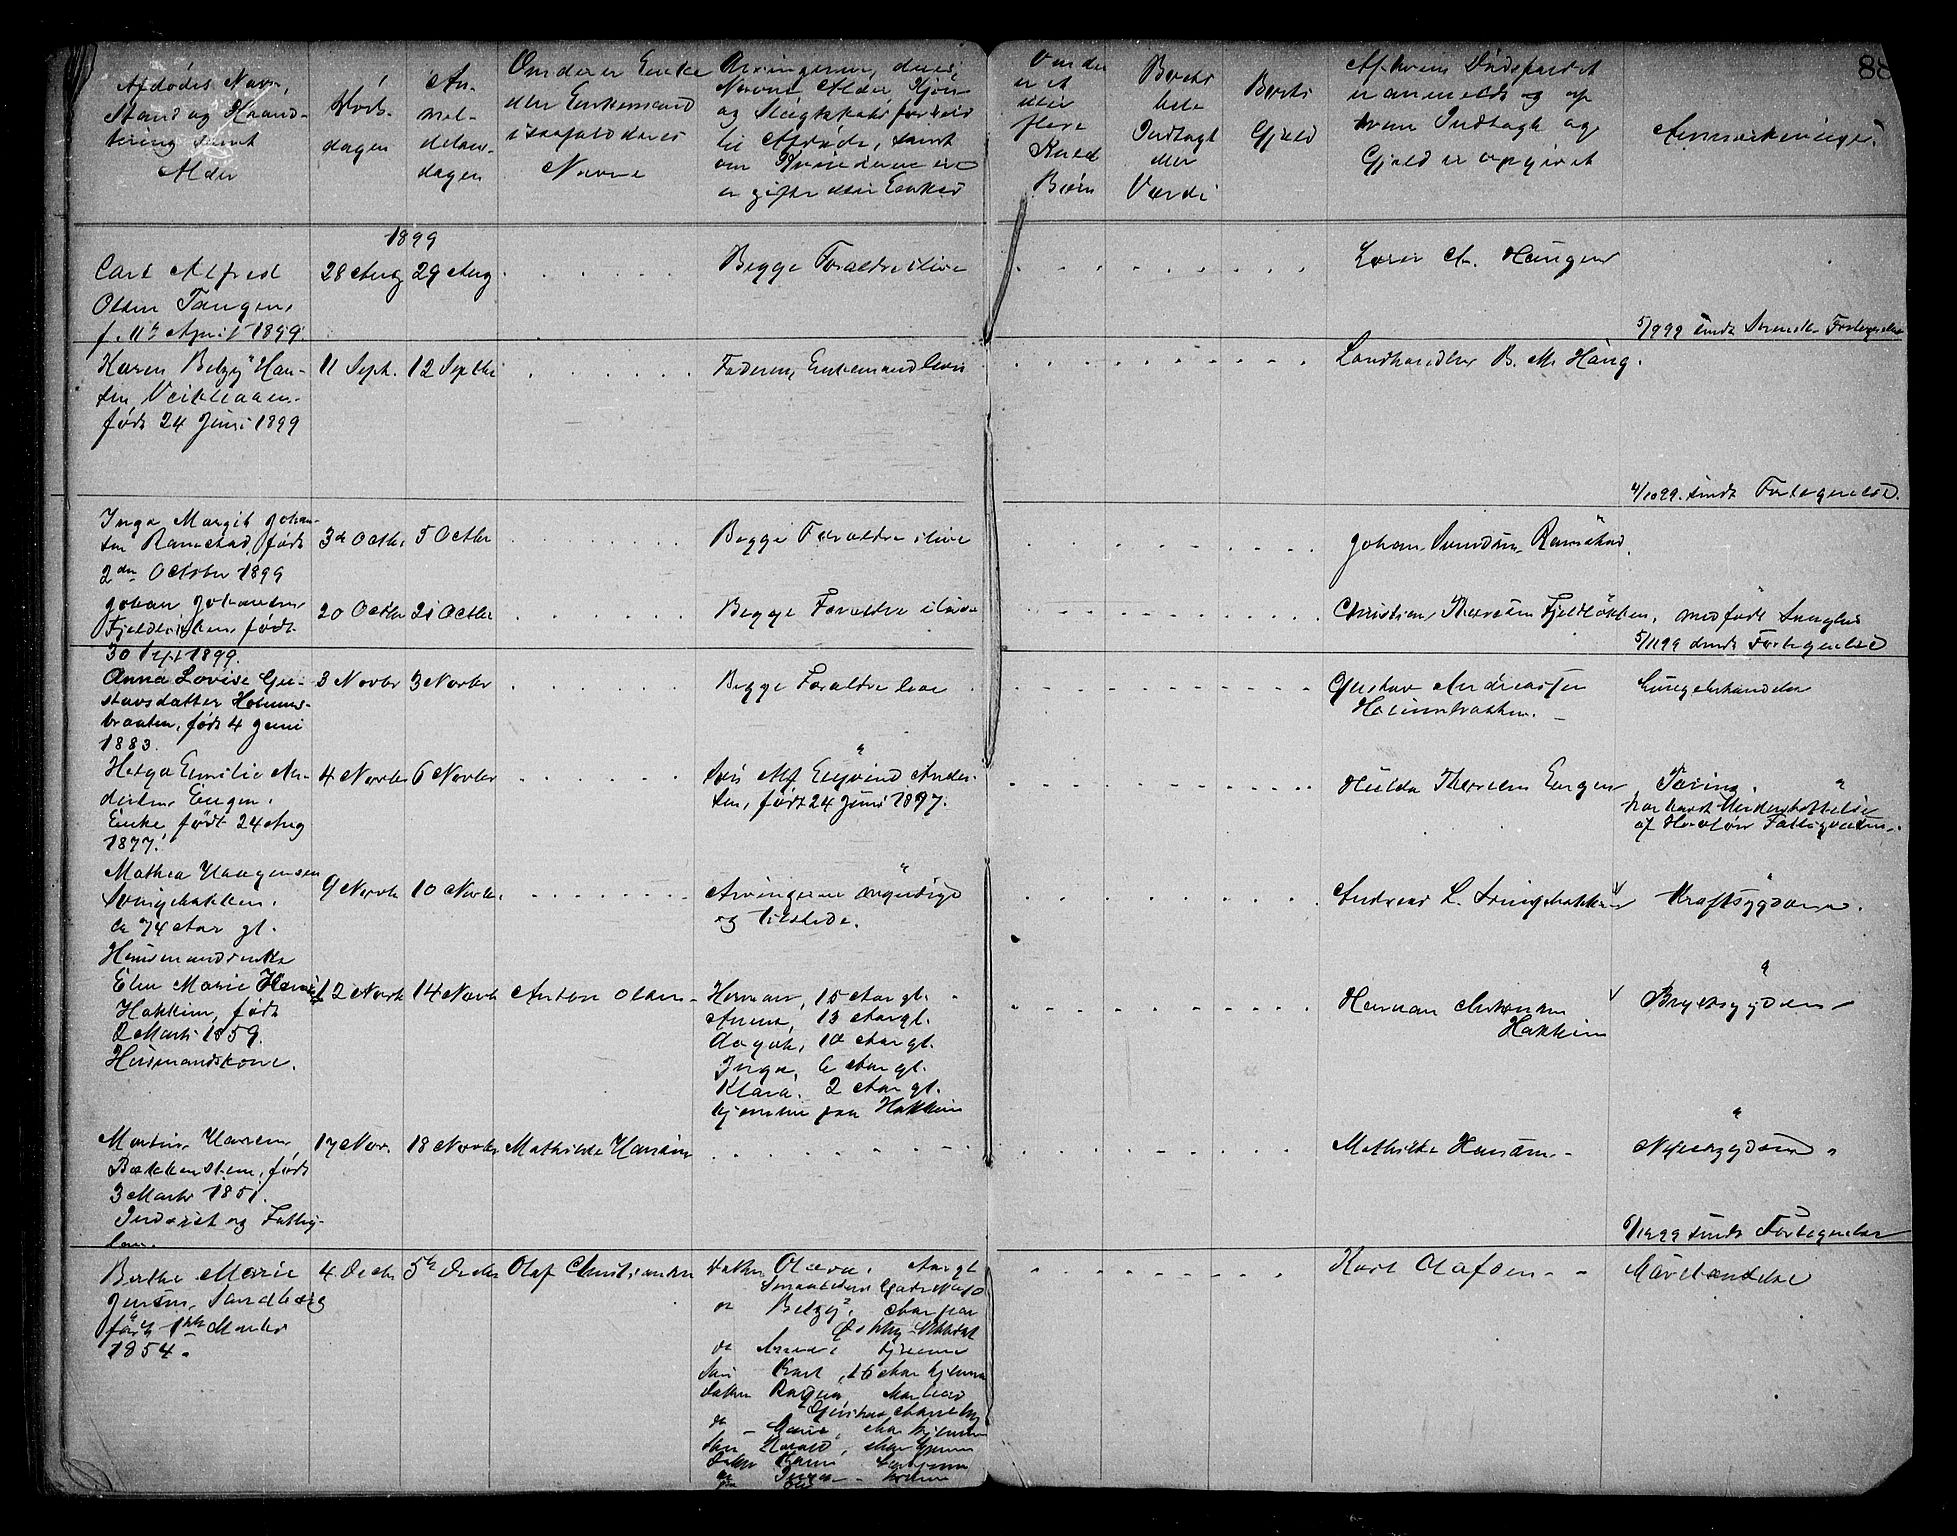 88
Afdødes Navn,
Stand og Haand-
tering samt
Alder
Døds-
dagen
An-
mel-
delses-
dagen
Om der er Enke
eller Enkemand
i saafald deres
Navne
Arvingerne, deres
Navne Alder Kjøn
og Slægtskabsforhold
til Afdøde, samt
om Kvinderne
er gifte eller Enker
Om der
er et
eller
flere
Kuld
Børn
Boets
hele
Indtægt
eller
Værdi
Boets
Gjæld
Af hvem Dødsfaldet
er anmeldt og af
hvem Indtægt og
Gjæld er opgivet
Anmærkninger
1899
Carl Alfred
Olsen Tangen,
f. 11te April 1899.
28 Aug
29 Aug
Begge Forældre ilive
Lærer A. Haugen
5/9 99 sendt Fortegnelse
Karen Betzy Han-
sen
født 24 Juni 1899
11 Sept.
12 Septbr
Faderen, Enkemand lever
Landhandler B. M. Haug.
4/10 99. sendt Fortegnelse.
Inga Margit Johan-
sen Ramstad, født
2den October 1899
3de Octbr
5 Octbr
Begge Forældre ilive
Johan Svendsen Ramstad.
Johan Johansen
født
30 Sept 1899.
20 Octbr
21 Octbr
Begge Forældre ilive
Christian Thoresen Fjeldløkken,
medfødt Svaghed
5/11 99 sendt Fortegnelse
Anna Lovise Gu-
stavsdatter Holmens-
braaten, født 4 Juni
1883.
3 Novbr
3 Novbr
Begge Forældre leve
Gustav Andreassen
Lungebetændelse
Helga Emilie An-
dersen Engen,
Enke, født 24 Aug
1877.
4 Novbr
6 Novbr
Søn Alf Eyvind Ander-
sen, født 24 Juni 1897.
Hulda Thoresen Engen
Tæring.
har havt Understøttelse
af Fattigvæsen.
Mathea Haagensen
Svingbakken.
ca 74 Aar gl.
Husmandsenke
9 Novbr
10 Novbr.
Arvingerne myndige
og tilstede.
Andreas L. Svingbakken
Kræftsygdom.
Elen Marie
Hakkim, født
2 Marts 1859.
Husmandskone.
12 Novbr
14 Novbr
Anton Olsen
Herman, 15 Aar gl.
Anna, 13 Aar gl.
Aagot, 10 Aar gl.
Inga, 6 Aar gl.
Klara, 2 Aar gl.
hjemme paa Hakkim
Herman Antonsen
Hakkim
Brystsygdom
Martin Hansen
Bækkenstein, født
3 Marts 1851.
Inderst og Fattig-
lem.
17 Nov.
18 Novbr
Mathilde Hansen
Mathilde Hansen
Nyresygdom
6/12 99 sendt Fortegnelse
Berthe Marie
Jensen, Sandberg
født 1ste Marts
1854.
4 Decbr
5te Decbr
Olaf Christiansen
Datter Olava, Aar gl
do Betzy, Aar paa
do hjemme
Søn Karl, 15 Aar hjemme
Datter Ragna
do Marie, Aar hjemme
Søn Harald, Aar hjemme
Karl Olafsen